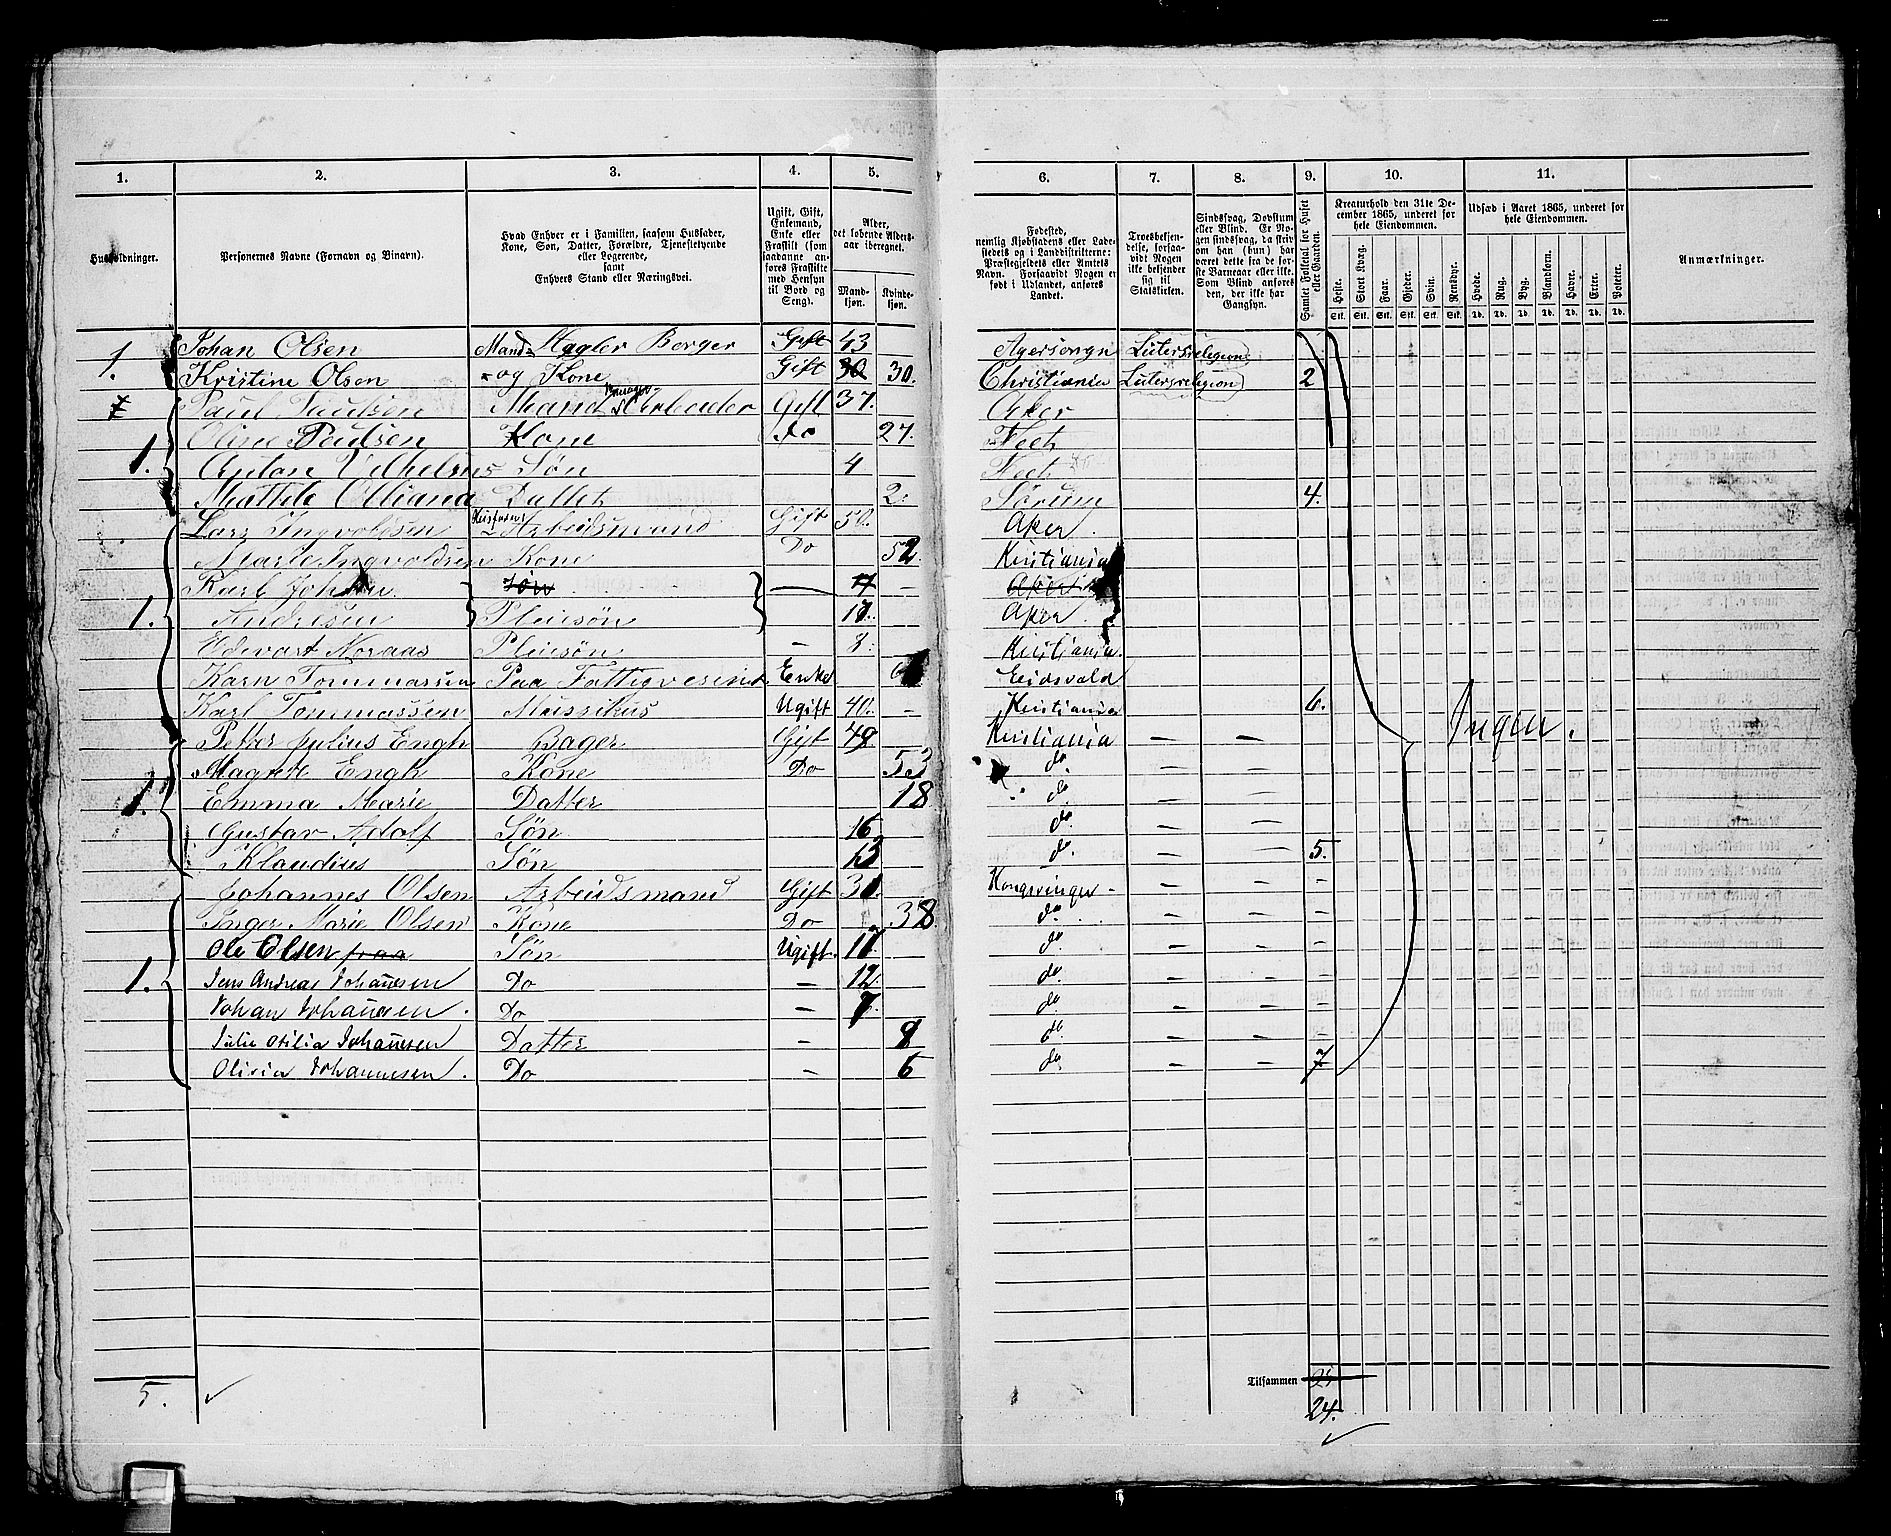 1. 2. 3. 4. 5. 6. 7. 8. 9. 10. 11.
Husholdninger.
Personernes Navne (Fornavn og Binavn).
Hvad Enhver er i Familien, saasom Husfader, Kone, Søn, Datter, Forældre, Tjenestetyende eller Logerende, samt Enhvers Stand eller Næringsvei.
Ugift, Gift, Enkemand, Enke eller Fraskilt (som saadanne anføres Fraskilte med Hensyn til Bord og Seng).
Alder, det løbende Aldersaar iberegnet.
Mandkjøn. Kvindekjøn.
Fødested, nemlig Kjøbstadens eller Ladestedets og i Landdistrikterne: Præstegjeldets eller Amtets Navn. Forsaavidt Nogen er født i Udlandet, anføres Landet.
Troesbekjendelse, forsaavidt Nogen ikke bekjender sig til Statskirken.
Sindssvag, Døvstum eller Blind. Er Nogen sindssvag, da skriv om han (hun) har været dette fra de første Barneaar eller ikke. Som Blind anføres den, der ikke har Gangsyn.
Samlet Folketal for Huset eller Gaarden.
Kreaturhold den 31te December 1865, underet for hele Eiendommen.
Heste. Stort Kvæg. Faar. Gjeder. Svin. Rensdyr.
Stk. Stk. Stk. Stk. Stk. Stk.
Udsæd i Aaret 1865, underet for hele Eiendommen.
Hvede. Rug. Byg. Blandkorn. Havre. Erter. Poteter.
Td. Td. Td. Td. Td. Td. Td.
Anmærkninger.
1. Johan Olsen Mand Gift 43
Kristine Olsen og Kone Gift 30 30. Christiania Lutersreligion 2
Paul Paulsen Mand Arbeider Gift 37. Aker
1. Oline Paulsen Kone Do 27. Nech
Anton Vilhelm Søn 4 Nech
Mathile Datter 2. Sørum 4.
Lars Ingvoldsen Husfader Arbeidsmand Gift 50. Aker.
Marte Ingvoldsen Kone Do 52 Kristiania
Karl Johan Søn
1. Andresen Pleiesøn Aker
Edevart Noraas Pleiesøn - 8. Kristiania
Karn Tommassen Paa Fattigvesind. Enke Eidsvold
Karl Tommassen Mussikus Ugift 40. - Kristiania 6.
Petter Julius Engh Bager Gift 49 Kristiania - -
Magrete Engh Kone Do 53 do - -
1. Emma Marie Datter 18 do - -
Gustav Adolf Søn 16 do. - -
Klaudius Søn 13 do. - - 5.
Johannes Olsen Arbeidsmand Gift Kongsvinger - - -
Inger Marie Olsen Kone Do 38 do. - -
Ole Olsen Søn Ugift. do - -
1. Jens Andreas Johannesen Do - 12. do. - -
Johan Johannesen. Do - 7. do - -
Julie Otilia Johannesen Datter - do. - -
Olivia Johannesen. Do - 6 do - - 7
Ingen.
5.
Tilsammen
24.